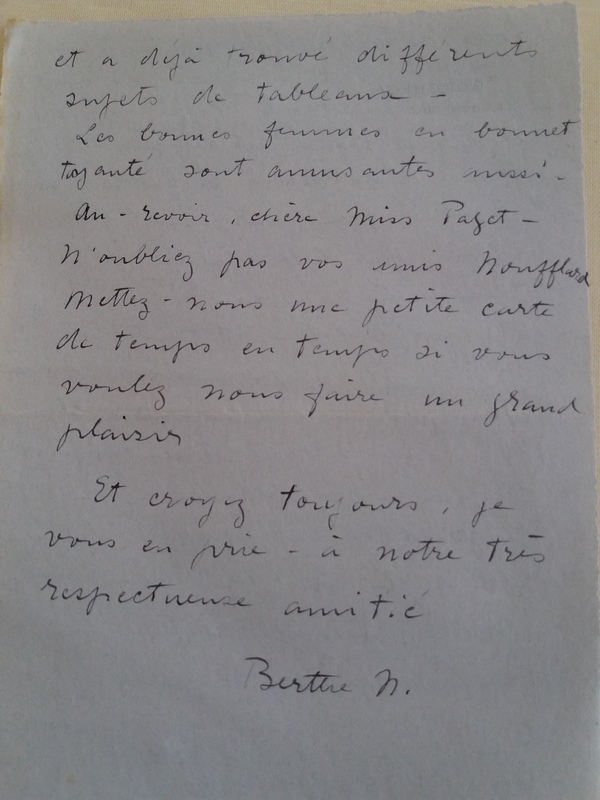 et a déjà trouvé différents
sujets de tableaux -
Les bonnes femmes en bonnet
tuyauté sont amusantes aussi -
Au - revoir, chère Miss Paget -
N'oubliez pas vos amis Noufflard
Mettez - nous une petite carte
de temps en temps si vous
voulez nous faire un grand
plaisir
Et croyez toujours, je
vous en prie - à notre très
respectueuse amitié
Berthe N.